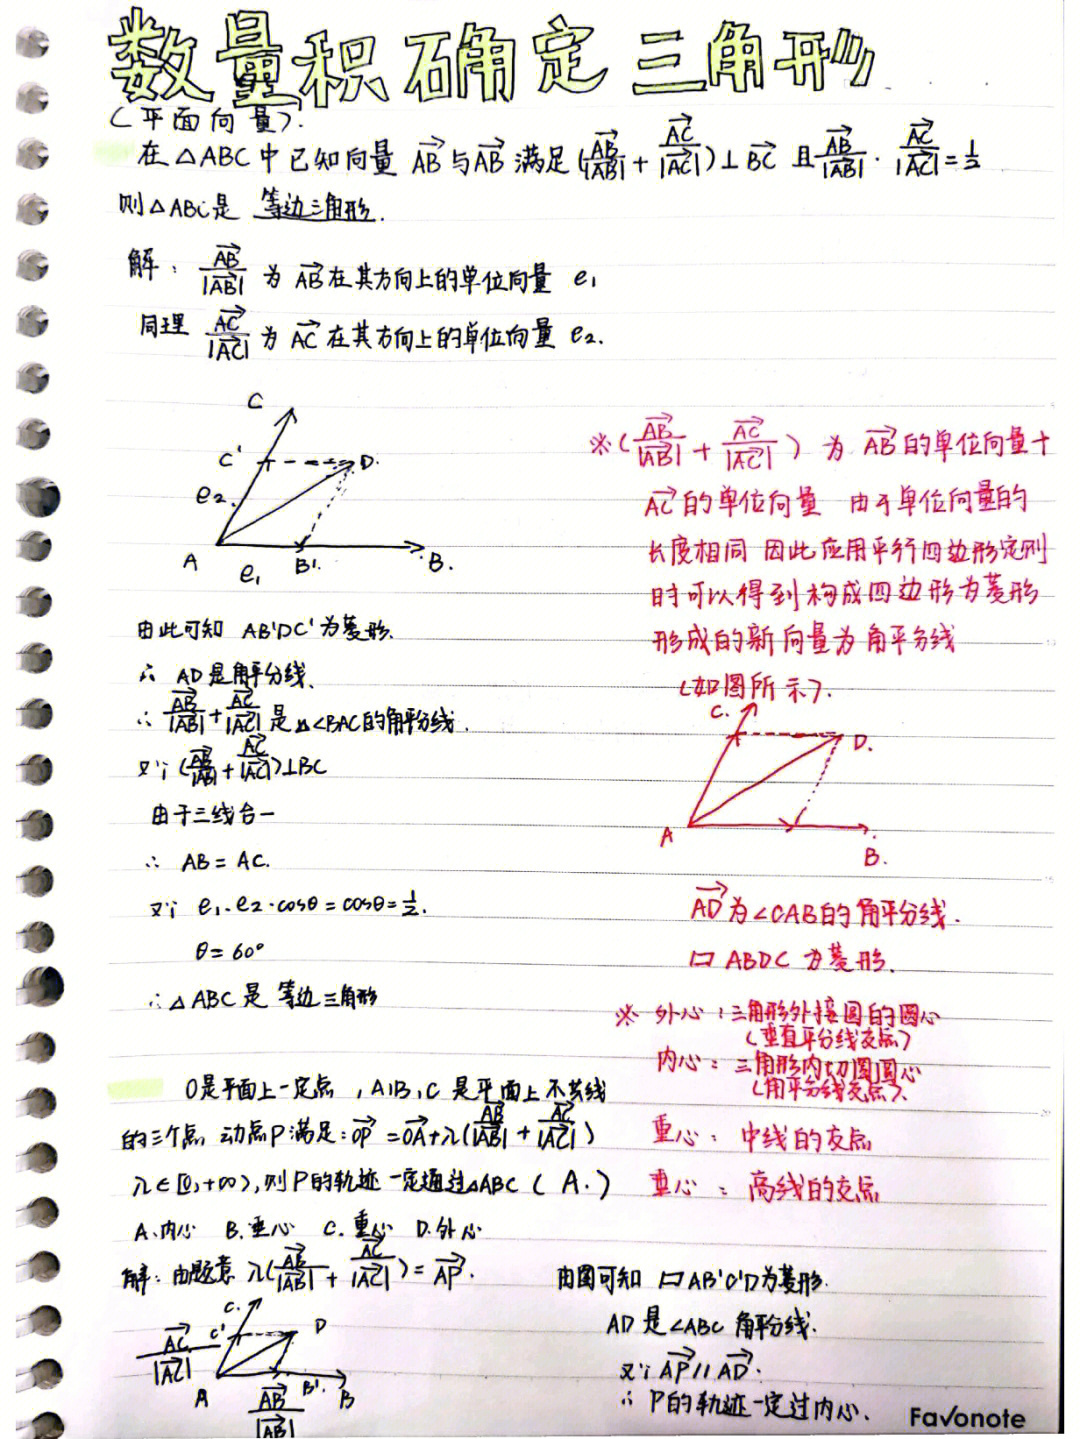 数量积确定三角形
(平面向量).
在△ABC中已知向量 AB与AB 满足(AB/|AB| + AC/|AC|)⊥BC 且AB/|AB| · AC/|AC| = 1/2
则△ABC是 等边三角形.
解: AB/|AB| 为 AB在其方向上的单位向量 e₁
同理 AC/|AC| 为 AC在其方向上的单位向量 e₂.
C
C' D.
e₂
A e₁ B'. B.
由此可知 AB'DC'为菱形.
∴ AD是角平分线.
∴ AB/|AB| + AC/|AC| 是△∠BAC的角平分线.
又∵ (AB/|AB| + AC/|AC|)⊥BC
由于三线合一
∴ AB = AC.
又∵ e₁·e₂·cosθ = cosθ = 1/2.
θ = 60°
∴△ABC是 等边三角形
※(AB/|AB| + AC/|AC|) 为 AB的单位向量+
AC的单位向量 由于单位向量的
长度相同 因此应用平行四边形定则
时可以得到构成四边形为菱形
形成的新向量为角平分线
(如图所示).
C.
D.
A
B.
AD为∠CAB的角平分线.
▱ ABDC 为菱形.
※ 外心:三角形外接圆的圆心
(垂直平分线交点)
内心:三角形内切圆圆心
(角平分线交点).
重心: 中线的交点
垂心: 高线的交点
O是平面上一定点,A,B,C 是平面上不共线
的三个点 动点P满足:OP = OA+λ(AB/|AB| + AC/|AC|)
λ∈[0,+∞),则P的轨迹一定通过△ABC ( A.)
A.内心 B.垂心 C.重心 D.外心
解: 由题意 λ(AB/|AB| + AC/|AC|) = AP.
C.
AC/|AC| C' D
A AB/|AB| B'. B
由图可知 ▱AB'C'D为菱形.
AD是∠ABC 角平分线.
又∵ AP // AD.
∴ P的轨迹一定过内心.
Favonote